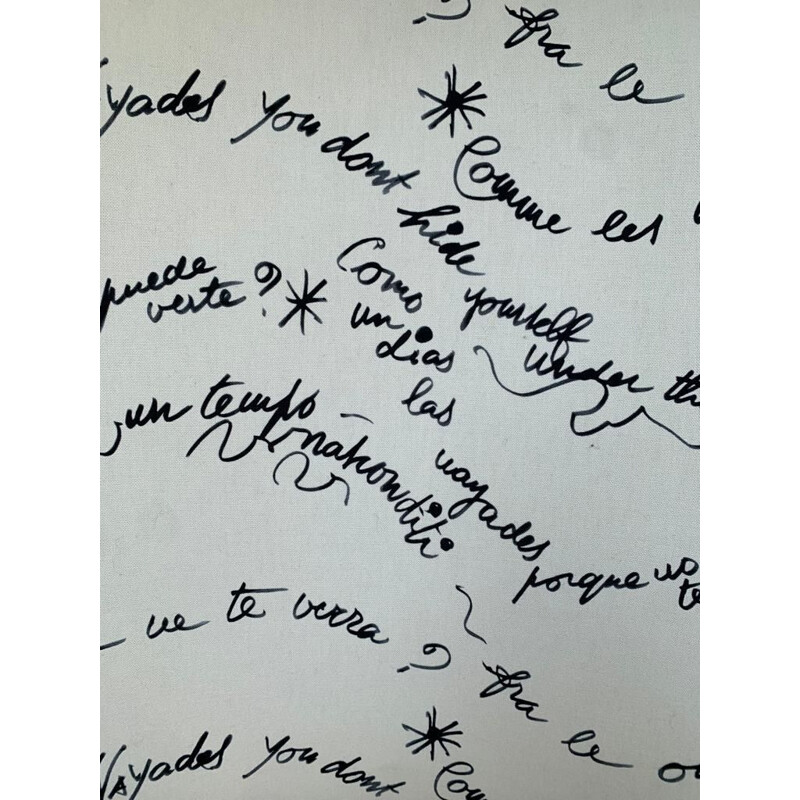 ? fra le
yades you dont hide yourself under th
Comme les
puede
verte?
Como
un
dias
las
vayades
porque no
te
un tempo
nahonditi
ve te verra ? fra le o
Vayades you dont
Com